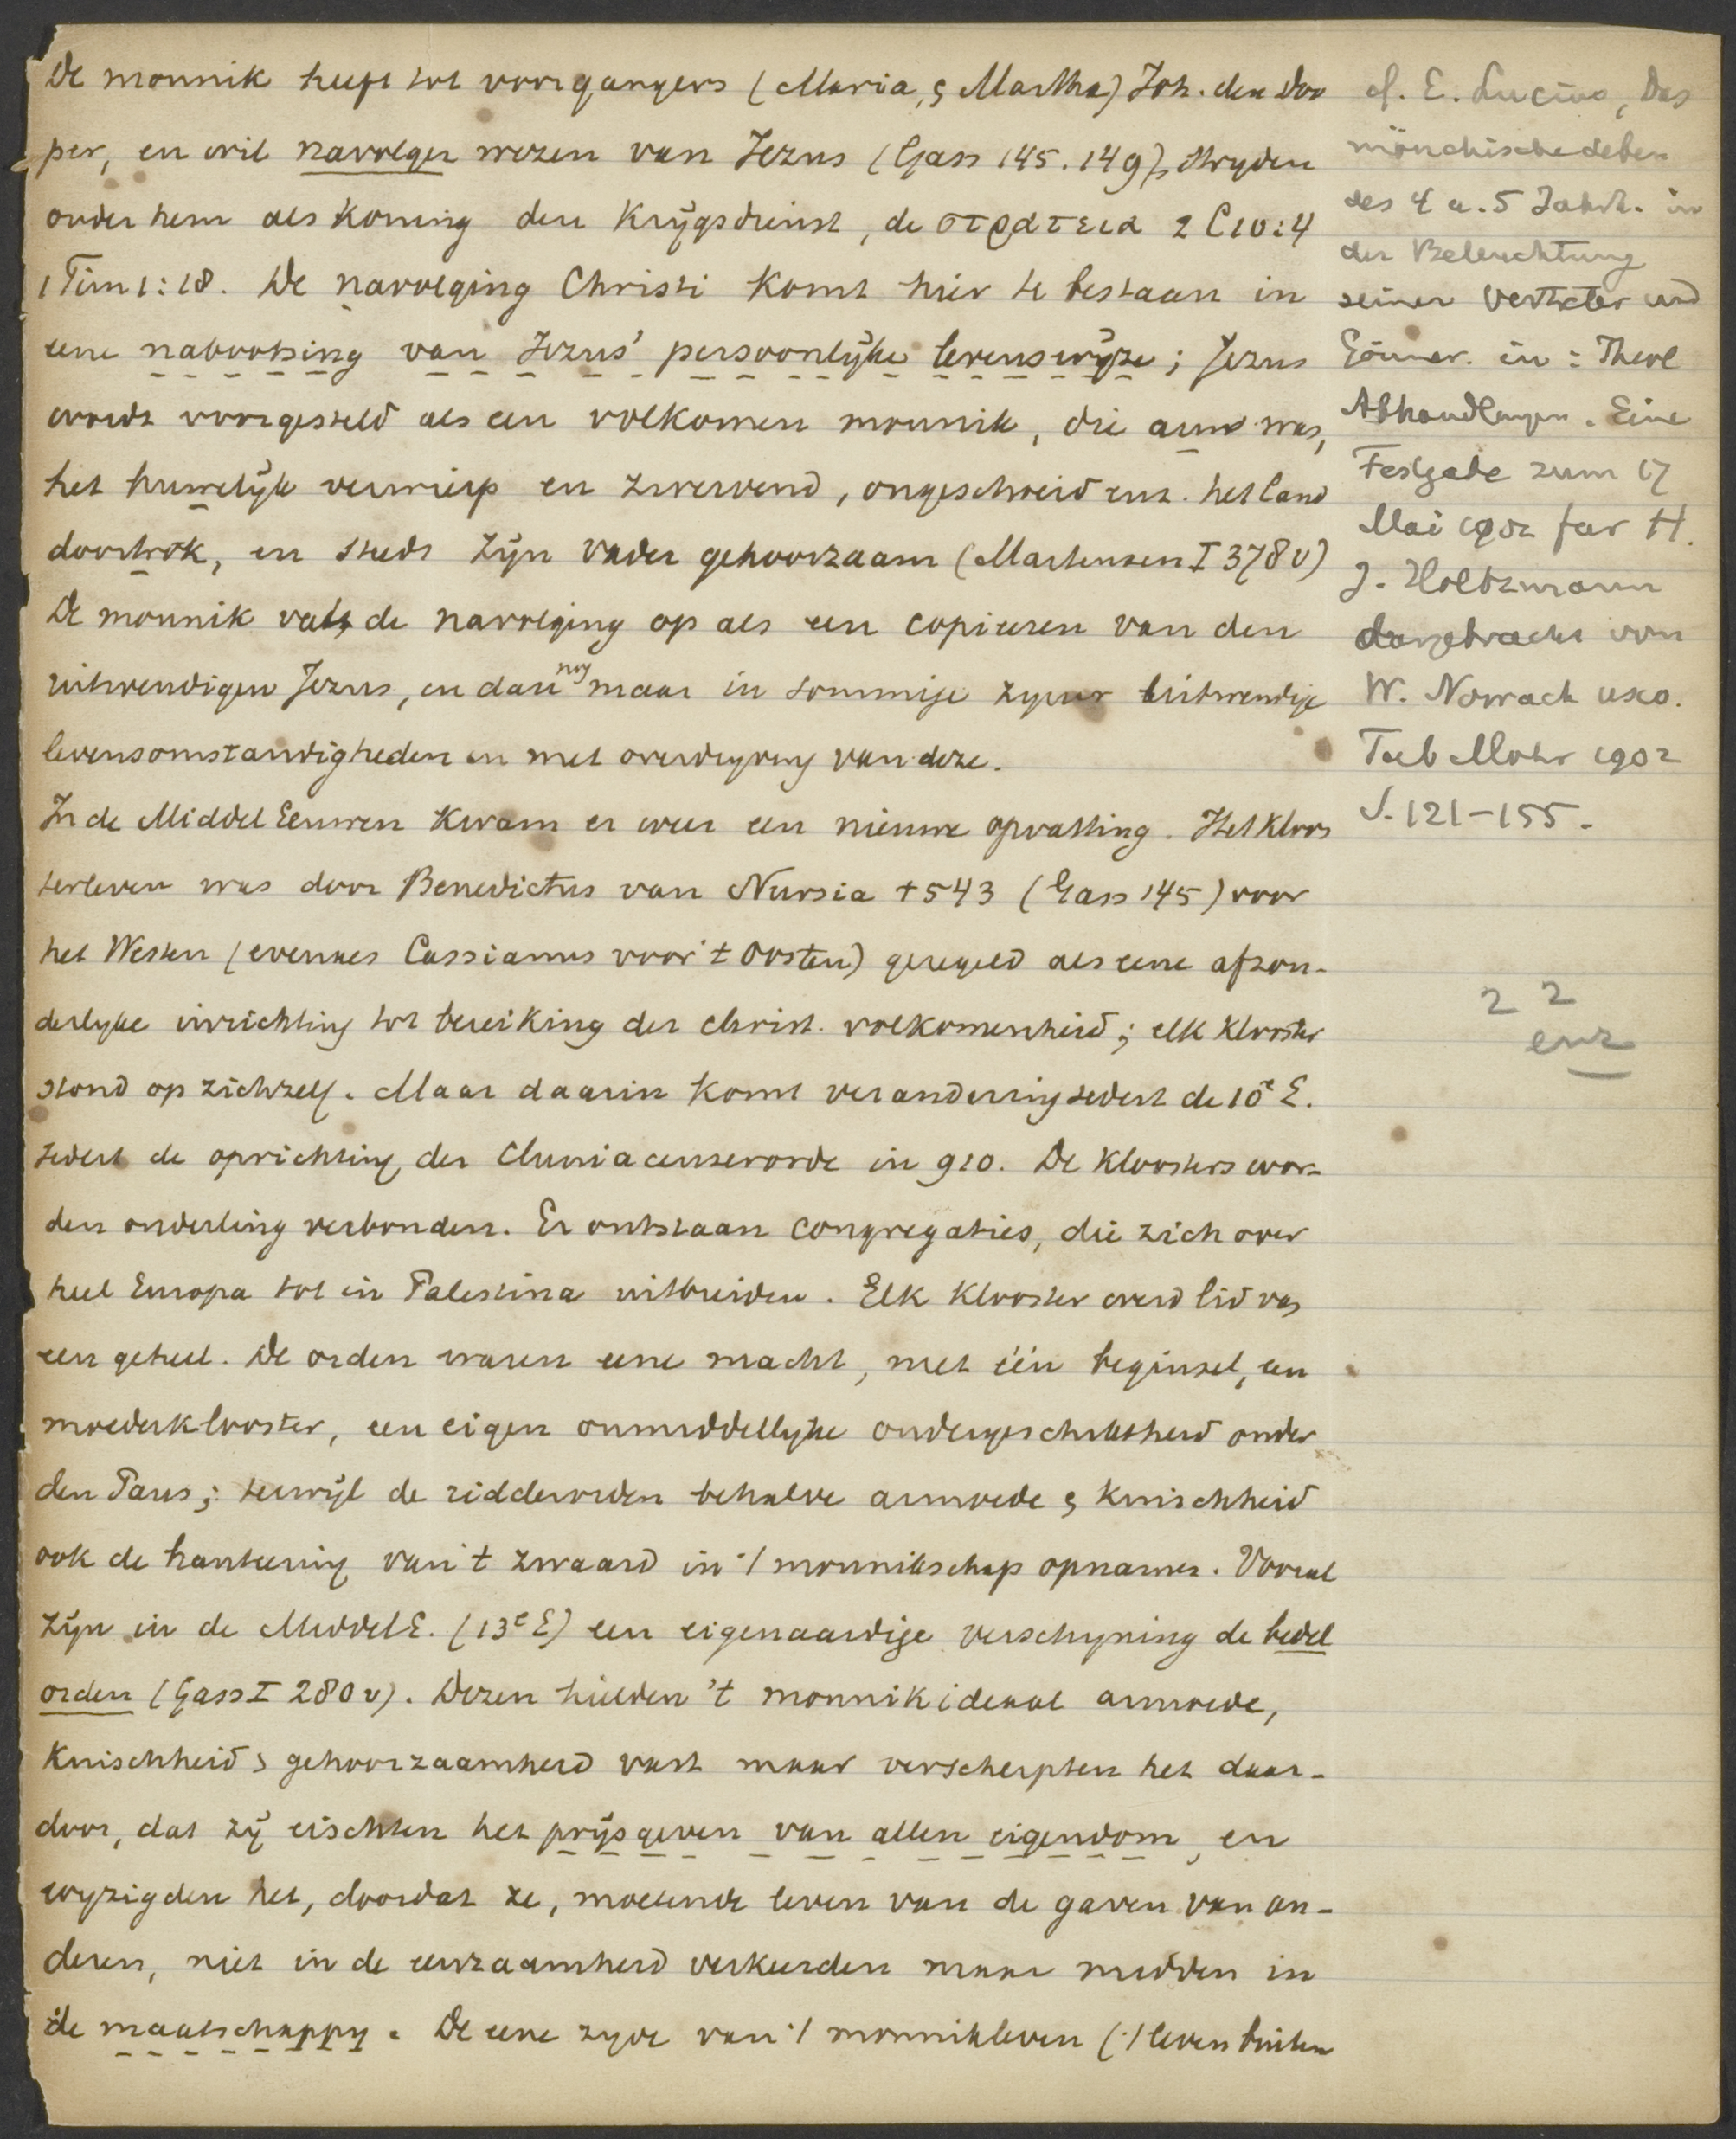 De monnik heeft tot voorgangers (Maria, & Martha) Joh. den Doo
per, en wil navolger wezen van Jezus (Gass 145. 149), stryden
onder hem als Koning den Krijgsdienst, de στρατεια 2 C 10:4
1 Tim 1:18. De navolging Christi komt hier te bestaan in
eene nabootsing van Jezus' persoonlijke levenswijze; Jezus
wordt voorgesteld als een volkomen monnik, die arm was,
het huwelijk verwierp en zwervend, ongeschoeid enz. het land
doortrok, en steeds zijn Vader gehoorzaam (Martensen I 378 v)
De monnik vat de navolging op als een copieeren van den
uitwendigen Jezus, en dan nog maar in sommige zyner uitwendige
levensomstandigheden en met overdryving van deze.
In de Middel Eeuwen kwam er weer een nieuwe opvatting. Het kloos
terleven was door Benedictus van Nursia † 543 (Gass 145) voor
het Westen (evenals Cassianus voor 't Oosten) geregeld als eene afzon-
derlyke inrichting tot bereiking der christ. volkomenheid; elk klooster
stond op zichzelf. Maar daarin komt verandering sedert de 10e E.
sedert de oprichting der Cluniacenserorde in 910. De kloosters wor-
den onderling verbonden. Er ontstaan congregaties, die zich over
heel Europa tot in Palestina uitbreiden. Elk klooster werd lid van
een geheel. De orden waren eene macht, met één beginsel, een
moederklooster, een eigen onmiddellyke ondergeschiktheid onder
den Paus; terwijl de ridderorden behalve armoede & kuischheid
ook de hanteering van 't zwaard in 't monnikschap opnamen. Vooral
zijn in de MiddelE. (13e E) een eigenaardige verschyning de bedel
orden (Gass I 280 v). Dezen hielden 't monnikideaal armoede,
kuischheid & gehoorzaamheid vast maar verscherpten het daar-
door, dat zij eischten het prijsgeven van allen eigendom, en
wyzigden het, doordat ze, moetende leven van de gaven van an-
deren, niet in de eenzaamheid verkeerden maar midden in
de maatschappy. De eene zyde van 't monnikleven ('t leven buiten
cf. E. Lucius, Das
mönchische Leben
des 4 u. 5 Jahrh. in
der Beleuchtung
seiner Vertreter und
Gönner. in: Theol
Abhandlungen. Eine
Festgabe zum 17
Mai 1902 für H.
J. Holtzmann
dargebracht von
W. Nowack usw.
Tüb Mohr 1902
S. 121-155.
2 2
enz